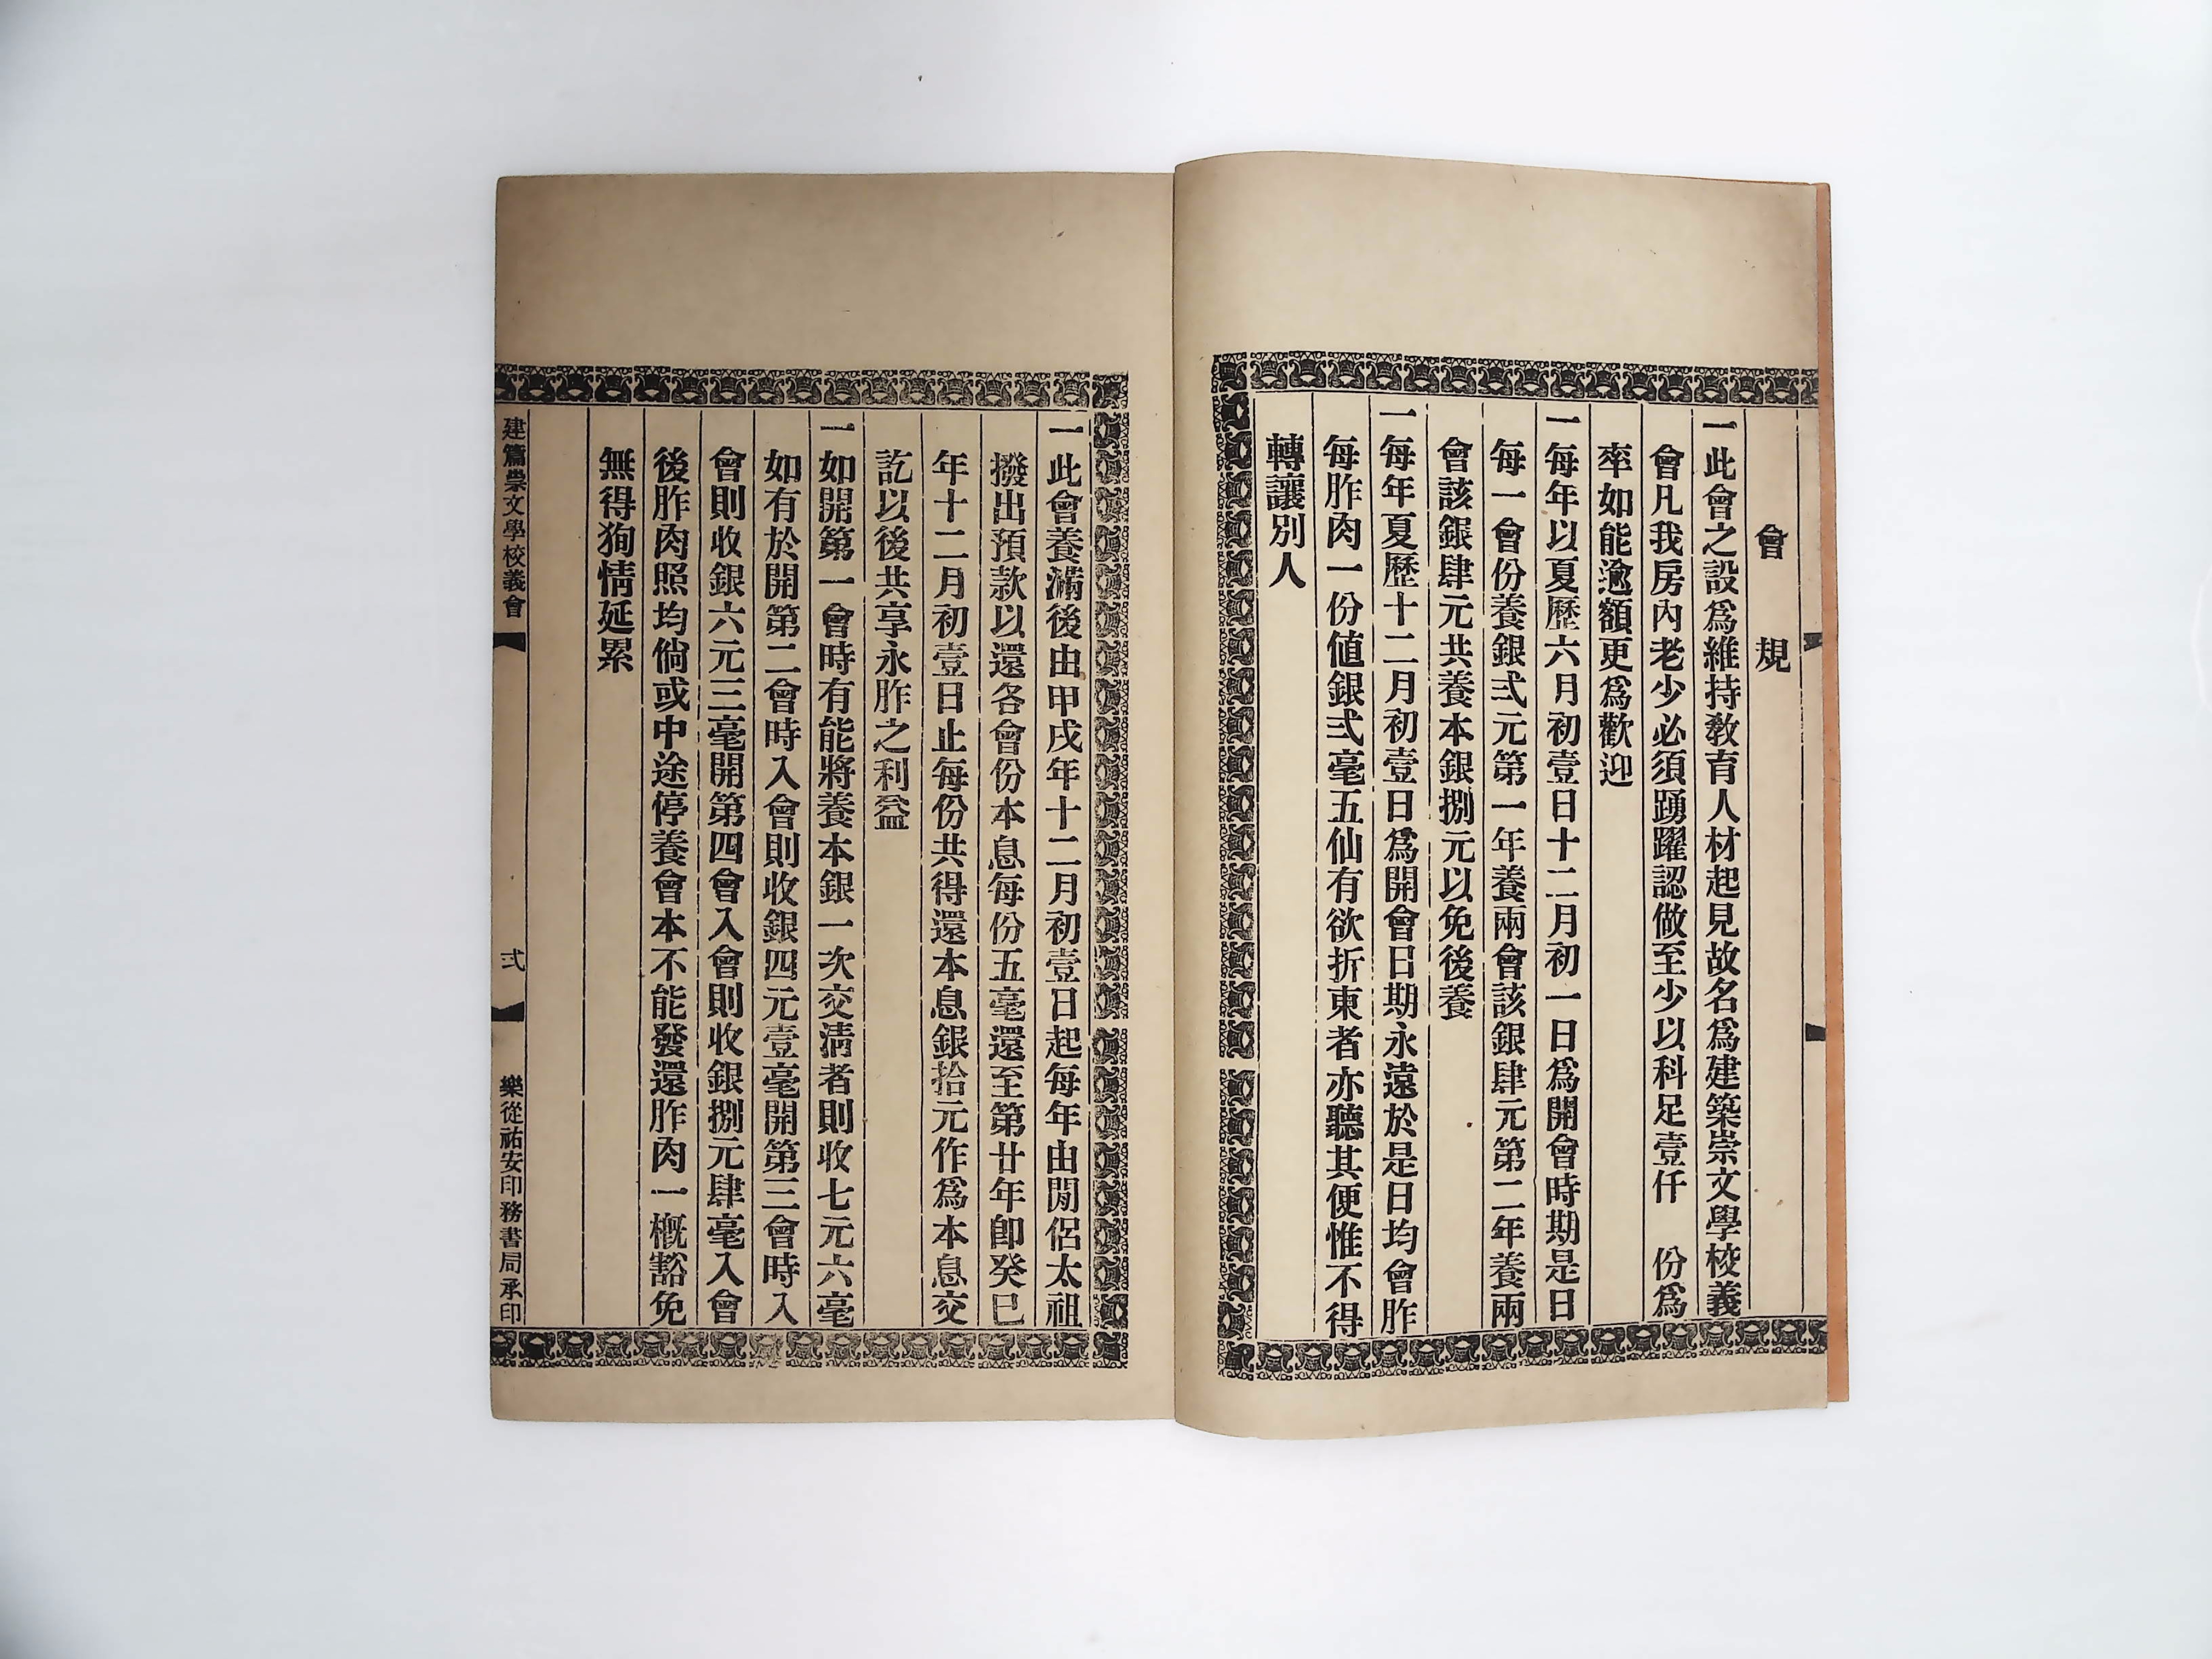 會規
一此會之設爲維持教育人材起見故名爲建築崇文學校義
會凡我房內老少必須踴躍認做至少以科足壹仟　份爲
率如能逾額更爲歡迎
一每年以夏歷六月初壹日十二月初一日爲開會時期是日
每一會份養銀弍元第一年養兩會該銀肆元第二年養兩
會該銀肆元共養本銀捌元以免後養
一每年夏歷十二月初壹日爲開會日期永遠於是日均會胙
每胙肉一份值銀弍毫五仙有欲折東者亦聽其便惟不得
轉讓別人
一此會養滿後由甲戌年十二月初壹日起每年由閒侶太祖
撥出預款以還各會份本息每份五毫還至第廿年卽癸巳
年十二月初壹日止每份共得還本息銀拾元作爲本息交
訖以後共享永胙之利益
一如開第一會時有能將養本銀一次交清者則收七元六毫
如有於開第二會時入會則收銀四元壹毫開第三會時入
會則收銀六元三毫開第四會入會則收銀捌元肆毫入會
後胙肉照均倘或中途停養會本不能發還胙肉一概豁免
無得狥情延累
建篇崇文學校義會
弍
樂從祐安印務書局承印